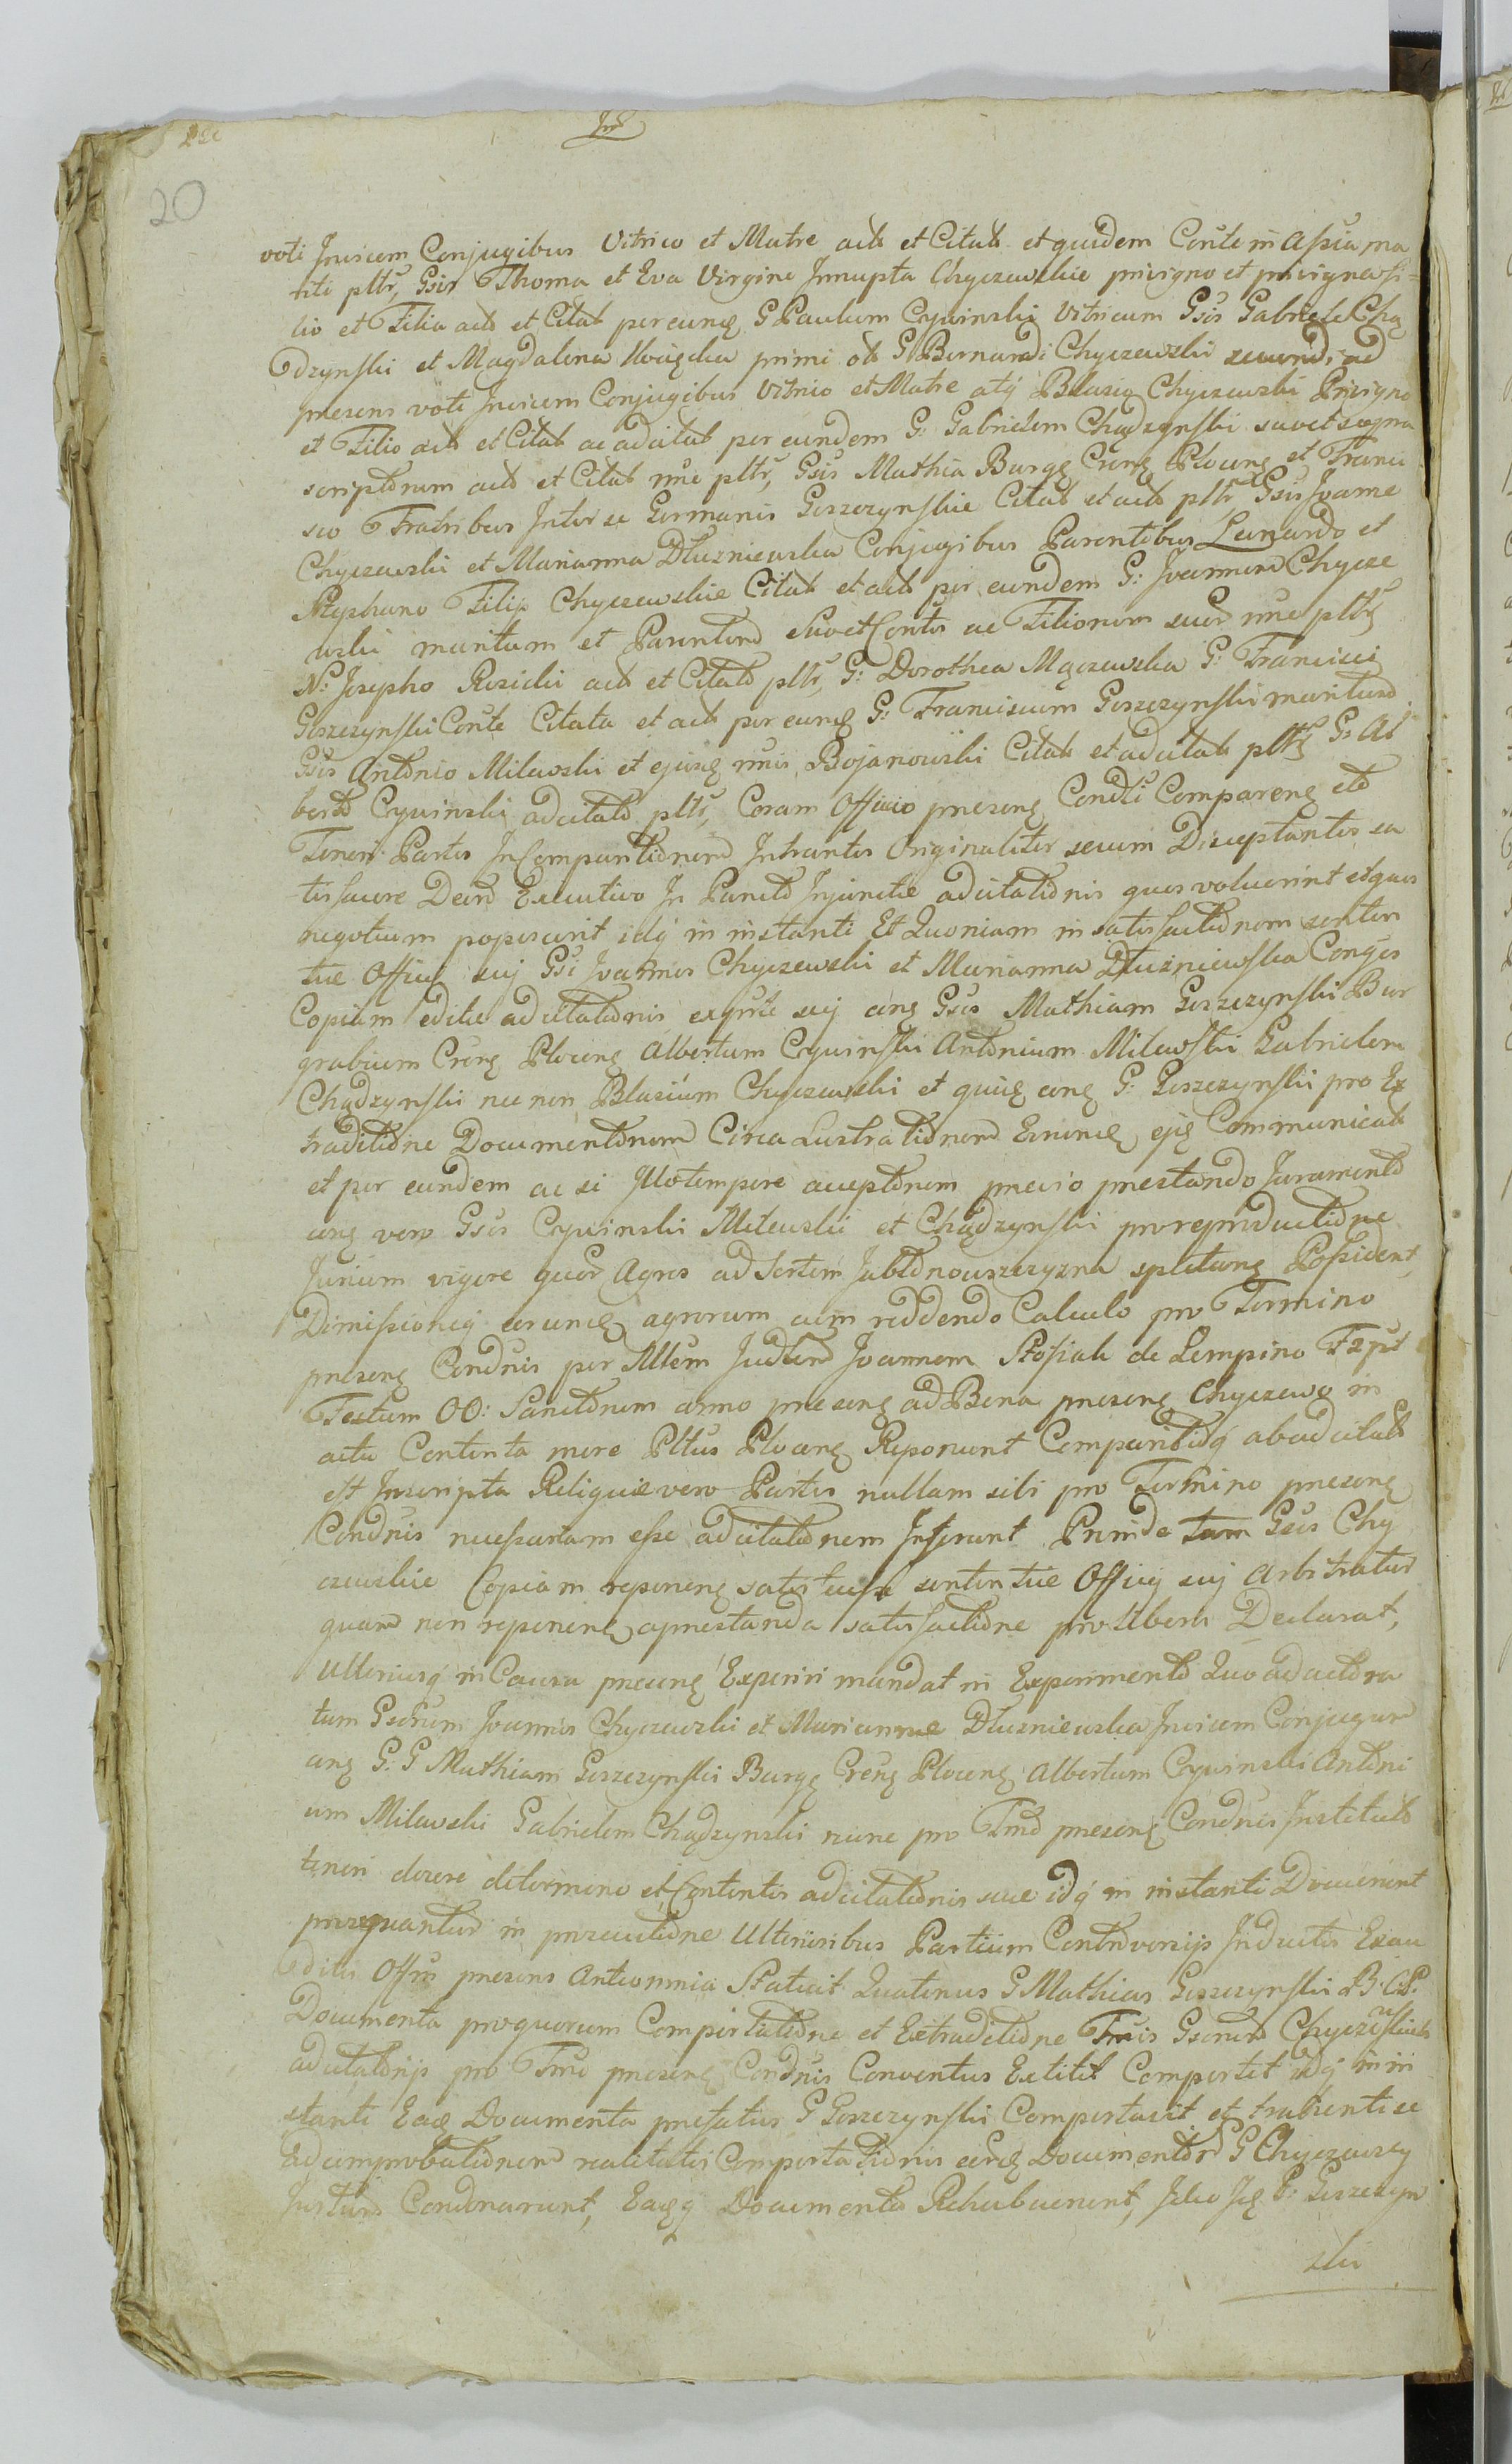 20
voti Invicem Conjugibus Vitrico et Matre act et Citat et quidem Conte in Assia ma
riti pltr, Gsis Thoma et Eva Virgine Innupta Chyczewskie privigno et privigna fi=
lio et Filia act et Citat per eunq G Paulum Cywinski Vitricum Gsis Gabriele Chą
dzynski et Magdalena primi olt G Bernardi Chyczewski secundi ad
presens voti Invicem Conjugibus Vitrico et Matre atq Blasio Chyczewski Privigno
et Filio act et Citat ac adcitat per eundem G: Gabrielem Chądzynski suo et supra
scriptorum act et Citat nne pltr, Gsis Mathia Burgg Crens Plocens et Franci
sco Fratribus Inter se Germanis Goszczynskie Citat et act pltr Gsis Joanne
Chyczewski et Marianna Dłuzniewska Conjugibus Parentibus Leonardo et
Stephano Filijs Chyczewskie Citat et act per eundem G: Joannem Chycze
wski maritum et Parentem suo et Contis ac Filiorum suor nne pltr
N: Josepho Rosicki act et Citato pltr, G: Dorothea Mączewska G: Francisci
Goszczynski Conte Citata et act per eunq G: Franciscum Goszczynski maritum
Gsis Antonio Milewski et ejusq nnis Bojanowski Citat et adcitat pltr G: Al
berto Cywinski adcitato pltr, Coram Officio presens Condti Comparens etc
Teneri Partes In Comparitionem Intrantes Originaliter secum Disceptantes sa
tisfacere Decro Executivo In Puncto Injunctae adcitationis quos voluerint et quos
negotium poposcerit idq in instanti Et Quoniam in satisfactionem senten
tiae Officij sui Gsi Joannes Chyczewski et Marianna Dłuzniewska Conges
Copiam editae adcitationis ex parte sui cing Gsos Mathiam Goszczynski Bur
grabium Crens Plocens Albertum Cywinski Antonium Milewski Gabrielem
Chądzynski nec non Blasium Chyczewski et quidq cong G: Goszczynski pro Ex
traditione Documentorum Circa Lustrationem ejq Communicat
et per eundem ac si Illo tempore acceptorum previo prestando Juramento
cing vero Gsos Cywinski Milewski et Chądzynski pro reproductione
Jurium vigore quor Agros ad Sortem Jabłonowszczyzna spectans Possident,
Dimissioneq eorumq agrorum cum reddendo Calculo pro Termino
presens Condnis per Mttem Judtem Joannem Stosiak de Lempino Fr pst
Festum OO: Sanctorum anno presens ad Bona presens Chyczewo in
actu Contenta more Pltus Plocens Reponunt Comparitioq ab adcitat
est Inscripta Reliquae vero Partes nullam sibi pro Termino presens
Condnis necessariam esse adcitationem Inferunt Proinde tam Gsis Chy
czewskie Copiam reponens satisfacta sententiae Officij sui Arbitratur
quam non reponens a prestanda satisfactione pro liberis Declarat,
Ulteriusq in Causa presens Experiri mandat in Experimento Quo ad actora
tum Gsorum Joannis Chyczewski et Mariannae Dłuzniewska Invicem Conjugum
cing G. G Mathiam Goszczynski Burgg Crens Plocens Albertum Cywinski Antoni
um Milewski Gabrielem Chądzynski nunc pro Tmo presens Condnis Institut
teneri docere de termino et Contentis adcitationis suae idq in instanti Docuerunt
prosequantur in prosecutione Ulterioribus Partium Controversijs Inductis Exau
ditis Offm presens Ante omnia Statuit Quatenus G Mathias Goszczynski B. C. P.
Documenta pro quorum Comportatione et Extraditione Tmis Gsorum Chyczewskich
adcitatorijs pro Tmo presens Condnis Conventus Extitit Comportet idq in in
stanti Eaq Documenta prefatus G Goszczynski Comportavit et trahenti se
ad comprobationem realitatis Comportationis eorq Documentor G Chyczewscy
Juramentum Condonarunt, Eaqq Documenta Rehabuerunt, Ideo Jq G: Goszczyn
ski